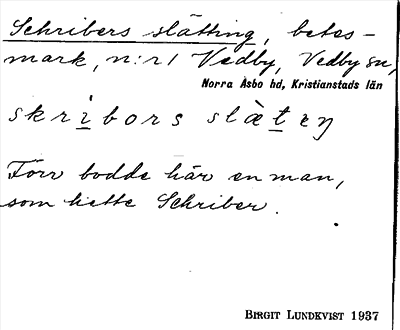 Schribers slätting, betes-
mark, n:r 1 Vedby, Vedby sn,
Norra Åsbo hd, Kristianstads län
skribors slæ̀teŋ
Förr bodde här en man,
som hette Schriber.
BIRGIT LUNDKVIST 1937